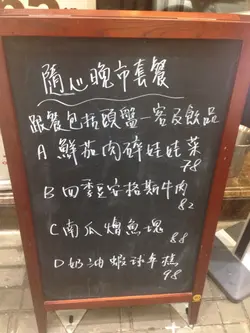 隨心晚市套餐
跟餐包括頭盤一客及飲品
A 鮮茄肉碎娃娃菜
78
B 四季豆安格斯牛肉
82
C 南瓜燴魚塊
88
D 奶油蝦球年糕
98